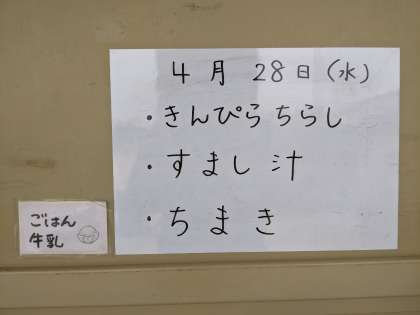 4月28日(水)
・きんぴらちらし
・すまし汁
・ちまき
ごはん
牛乳